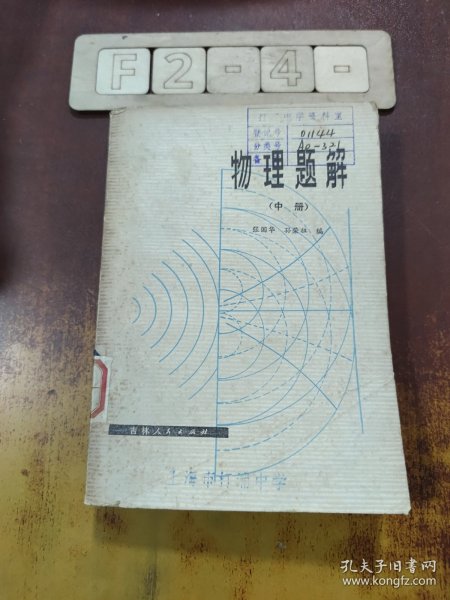 F2-4-
中学资料室
登记号 01144
分类号 A0-321
备
物理题解
（中册）
张国华 孙荣祖 编
吉林人民出版社
上海市打浦中学
孔夫子旧书网
www.kongfz.com